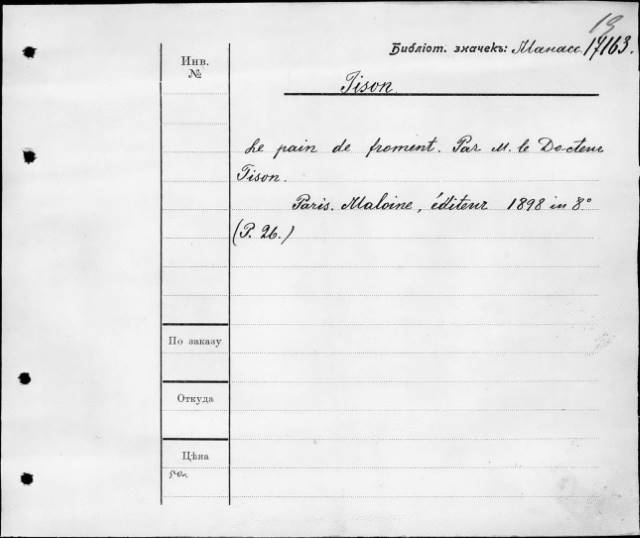 19
Библіот. значекъ: Манасс. 17163.
Инв.
№
Tison
Le pain de froment. Par M. le Docteur
Tison.
Paris. Maloine, éditeur 1898 in 8°
(P. 26.)
По заказу
Откуда
Цѣна